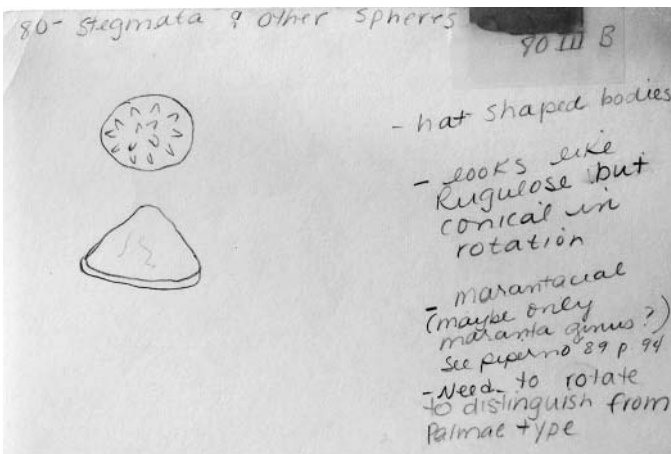 80- Stegmata & other Spheres
80 III B
- hat shaped bodies
- looks like
Rugulose but
conical in
rotation
- marantacial
(maybe only
maranta ginus?)
See piperno 89 p. 94
- Need to rotate
to distinguish from
Palmae type